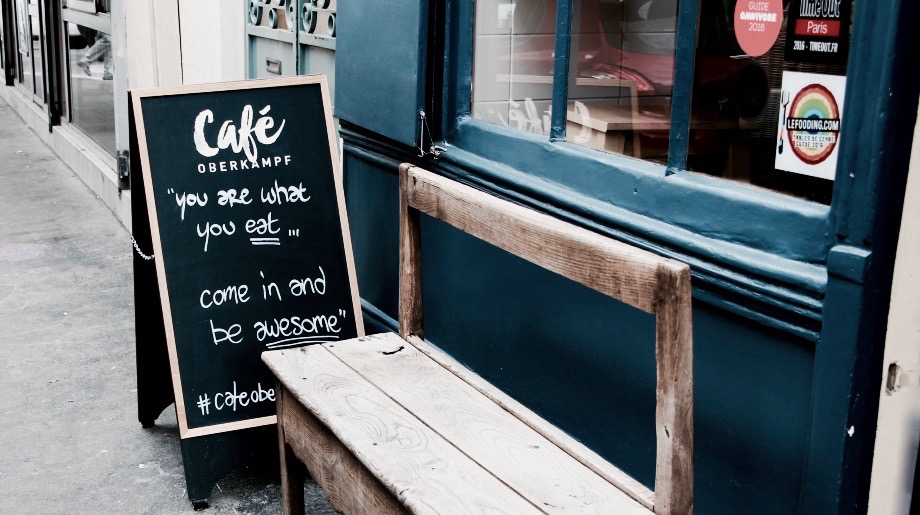 Café
OBERKAMPF
"you are what
you eat ...
come in and
be awesome"
#cafeobe
GUIDE
OMNIVORE
2016
Time Out
Paris
2016 - TIMEOUT.FR
LEFOODING.COM
GUIDE 2016